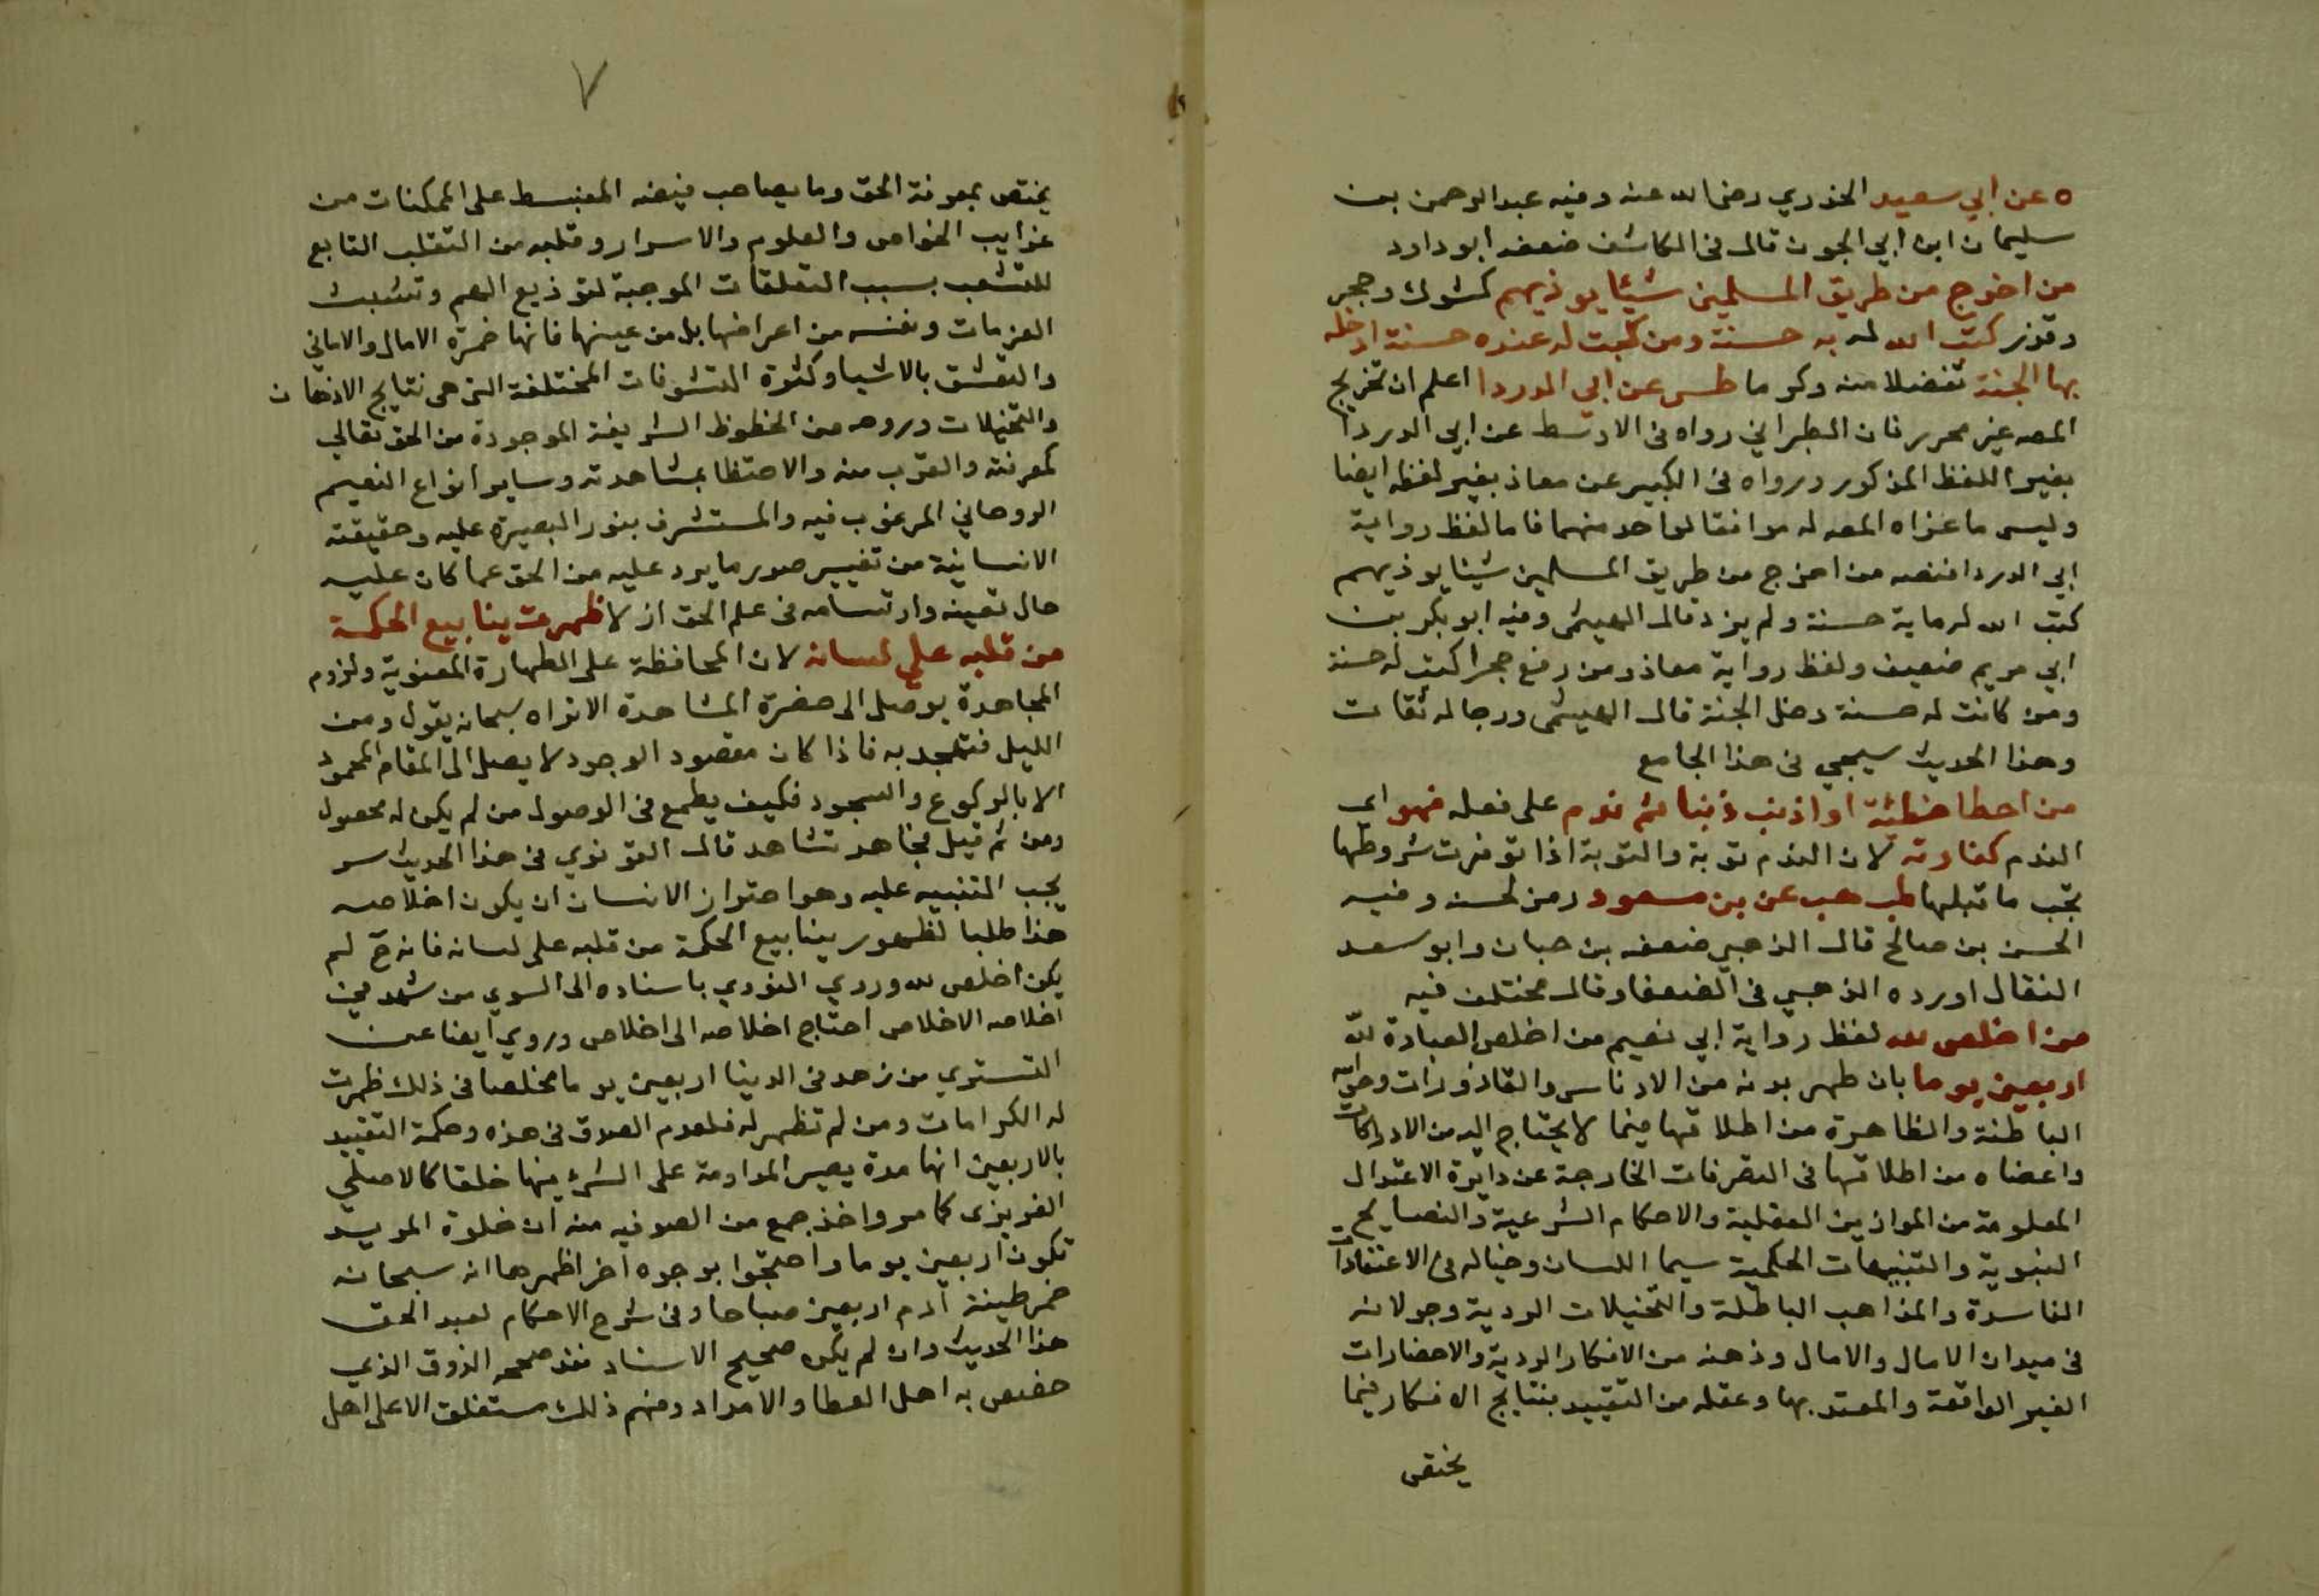 ه عن ابي سعيد الخدري رضي الله عنه وفيه عبد الرحمن بن
سليمان ابن ابي الجون قال في الكاشف ضعفه ابو داود
من اخرج من طريق المسلمين شيئا يوذيهم كشوك وحجر
وقذر كتب الله له به حسنة ومن كتبت له عنده حسنة ادخله
بها الجنة تفضلا منه وكرما طس عن ابي الدردا اعلم ان تخريج
المص غير محرر فان الطبراني رواه في الاوسط عن ابي الدردا
بغير اللفظ المذكور ورواه في الكبير عن معاذ بغير لفظه ايضا
وليس ما عزاه المص له موافقا لواحد منهما فاما لفظ رواية
ابي الدردا فنصه من اخرج من طريق المسلمين شيئا يوذيهم
كتب الله له ماية حسنة ولم يزد قال الهيثمي وفيه ابو بكر بن
ابي مريم ضعيف ولفظ رواية معاذ ومن رفع حجرا كتب له حسنة
ومن كانت له حسنة دخل الجنة قال الهيثمي ورجاله ثقات
وهذا الحديث سيجي في هذا الجامع
من اخطا خطئة او اذنب ذنبا ثم ندم على فعله فهو اي
الندم كفارته لان الندم توبة والتوبة اذا توفرت شروطها
تجب ما قبلها طب هب عن بن مسعود رمز لحسنه وفيه
الحسن بن صالح قال الذهبي ضعفه بن حبان وابو سعد
البقال اورده الذهبي في الضعفا وقال مختلف فيه
من اخلص لله لفظ رواية ابي نعيم من اخلص العبادة لله
اربعين يوما بان طهر بدنه من الادناس والقاذورات وحواسه
الباطنة والظاهرة من اطلاقها فيما لا يحتاج اليه من الادراكات
واعضاه من اطلاقها في التصرفات الخارجة عن دايرة الاعتدال
المعلومة من الموازين العقلية والاحكام الشرعية والنصايح
النبوية والتنبيهات الحكمية سيما اللسان وخياله من الاعتقادات
الفاسدة والمذاهب الباطلة والتخيلات الردية وجولانه
في ميدان الامال والامال وذهنه من الافكار الردية والاحضارات
الغير الواقعة والمعتد بها وعقله من التقييد بنتايج الافكار فيما
يختص
٧
يختص بمعرفة الحق وما يصاحب فيضه المنبسط على الممكنات من
غرايب الخواص والعلوم والاسرار وقلبه من التقلب التابع
للتشعب بسبب التعلقات الموجبة لتوزيع الهم وتشتيت
العزمات ونفسه من اعراضها بل من عينها فانها خمرة الامال والاماني
والتعشق بالاشيا وكثرة التشوفات المختلفة التي هي نتايج الاذهان
والتخيلات وروحه من الحظوظ الشريفة الموجودة من الحق تعالي
كمعرفته والقرب منه والاحتظا بمشاهدته وساير انواع النعيم
الروحاني المرغوب فيه والمستشرف بنور البصيرة عليه وحقيقته
الانسانية من تغيير صور ما يرد عليه من الحق عما كان عليه
حال تعينه وارتسامه في علم الحق ازلا ظهرت ينابيع الحكمة
من قلبه على لسانه لان المحافظة على الطهارة المعنوية ولزوم
المجاهدة يوصل الى حضرة المشاهدة الا تراه سبحانه يقول ومن
الليل فتهجد به فاذا كان مقصود الوجود لا يصل الى المقام المحمود
الا بالركوع والسجود فكيف يطمع في الوصول من لم يكن له محصول
ومن ثم قيل مجاهد تشاهد قال القونوي في هذا الحديث سر
يجب التنبيه عليه وهو احتراز الانسان ان يكون اخلاصه
هذا طلبا لظهور ينابيع الحكمة من قلبه على لسانه فانه ح لم
يكن اخلص لله وروي النووي باسناده الى السوي من شهد في
اخلاصه الاخلاص احتاج اخلاصه الى اخلاص وروي ايضا عن
التستري من زهد في الدينا اربعين يوما مخلصا في ذلك ظهرت
له الكرامات ومن لم تظهر له فلعدم الصدق في هذه وحكمة التقييد
بالاربعين انها مدة يصير المداومة على الشي فيها خلقا كالاصلي
الغريزي كما مر واخذ جمع من الصوفيه منه ان خلوة المريد
تكون اربعين يوما واحتجوا بوجوه اخر اظهرها انه سبحانه
خمر طينة آدم اربعين صباحا وفي شرح الاحكام لعبد الحق
هذا الحديث وان لم يكن صحيح الاسناد فقد صححه الذوق الذي
خصص به اهل العطا والامداد وفهم ذلك مستغلق الا على اهل